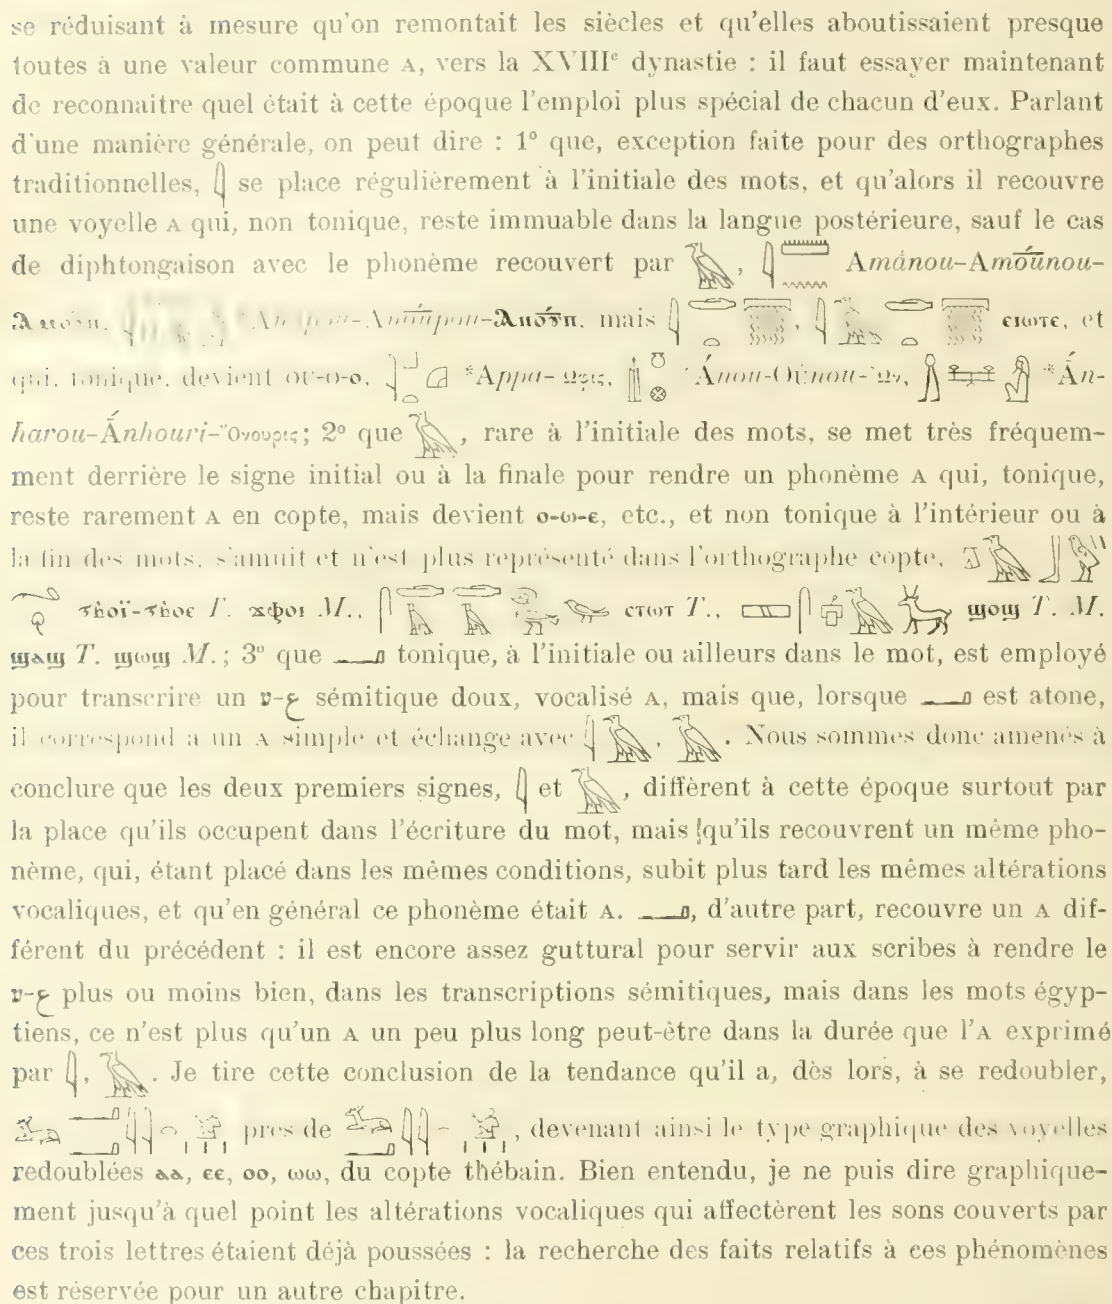 se réduisant à mesure qu'on remontait les siècles et qu'elles aboutissaient presque
toutes à une valeur commune A, vers la XVIIIᵉ dynastie : il faut essayer maintenant
de reconnaitre quel était à cette époque l'emploi plus spécial de chacun d'eux. Parlant
d'une manière générale, on peut dire : 1° que, exception faite pour des orthographes
traditionnelles, 𓇋 se place régulièrement à l'initiale des mots, et qu'alors il recouvre
une voyelle A qui, non tonique, reste immuable dans la langue postérieure, sauf le cas
de diphtongaison avec le phonème recouvert par 𓄿, 𓇋𓏠𓈖 Amánou-Amoúnou-
mais 𓇋 𓇋 ⲉⲓⲱⲧⲉ, et
qui, tonique, devient OU-O-O, *Appa- Ὦφις, Ánou-Oúnou-Ὤν, *Án-
harou-Ánhouri-Ὄνουρις; 2° que 𓄿, rare à l'initiale des mots, se met très fréquem-
ment derrière le signe initial ou à la finale pour rendre un phonème A qui, tonique,
reste rarement A en copte, mais devient ⲟ-ⲱ-ⲉ, etc., et non tonique à l'intérieur ou à
la fin des mots, s'amuit et n'est plus représenté dans l'orthographe copte,
ϭⲃⲟⲓ̈-ϭⲃⲟⲉ T. ϫⲫⲟⲓ M., ⲥⲧⲱⲧ T., ϣⲟϣ T. M.
ϣⲁϣ T. ϣⲱϣ M.; 3° que 𓂝 tonique, à l'initiale ou ailleurs dans le mot, est employé
pour transcrire un ע-ع sémitique doux, vocalisé A, mais que, lorsque 𓂝 est atone,
il correspond a un A simple et échange avec 𓇋𓄿, 𓄿. Nous sommes donc amenés à
conclure que les deux premiers signes, 𓇋 et 𓄿, diffèrent à cette époque surtout par
la place qu'ils occupent dans l'écriture du mot, mais qu'ils recouvrent un même pho-
nème, qui, étant placé dans les mêmes conditions, subit plus tard les mêmes altérations
vocaliques, et qu'en général ce phonème était A. 𓂝, d'autre part, recouvre un A dif-
férent du précédent : il est encore assez guttural pour servir aux scribes à rendre le
ע-ع plus ou moins bien, dans les transcriptions sémitiques, mais dans les mots égyp-
tiens, ce n'est plus qu'un A un peu plus long peut-être dans la durée que l'A exprimé
par 𓇋, 𓄿. Je tire cette conclusion de la tendance qu'il a, dès lors, à se redoubler,
près de , devenant ainsi le type graphique des voyelles
redoublées ⲁⲁ, ⲉⲉ, ⲟⲟ, ⲱⲱ, du copte thébain. Bien entendu, je ne puis dire graphique-
ment jusqu'à quel point les altérations vocaliques qui affectèrent les sons couverts par
ces trois lettres étaient déjà poussées : la recherche des faits relatifs à ces phénomènes
est réservée pour un autre chapitre.